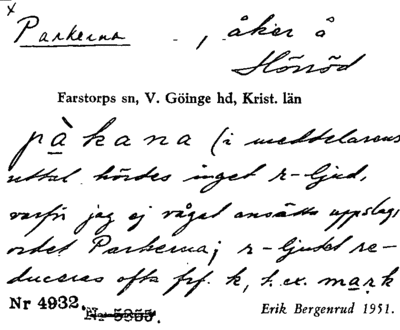 x
Parkerna , åker å
Hörröd
Farstorps sn, V. Göinge hd, Krist. län
pàkana (i meddelarens
uttal hördes inget r-ljud,
varför jag ej vågat ansätta uppslags
ordet Parkerna; r-ljudet re-
duceras ofta frf. k, t. ex. mark
Nr 4932. Nr 5255.
Erik Bergenrud 1951.